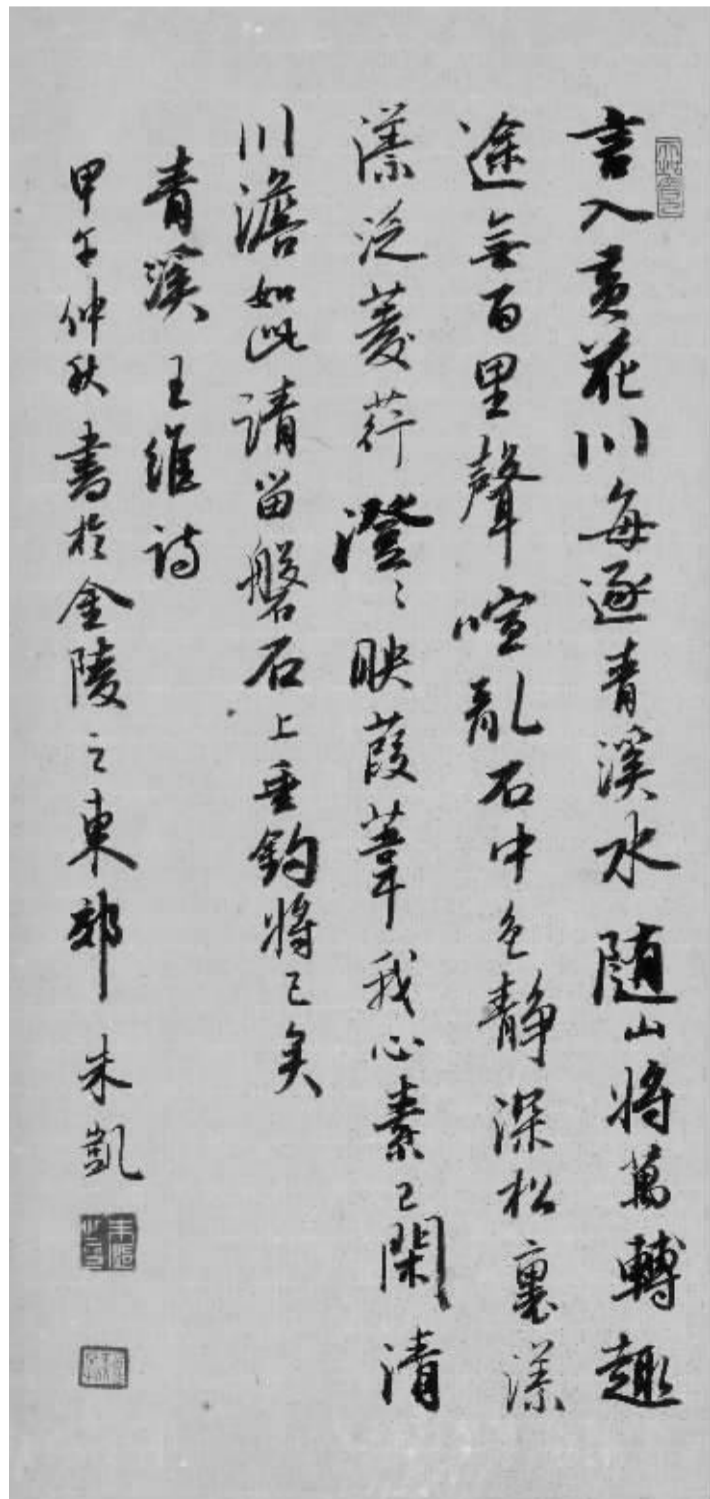 言入黄花川每逐青溪水随山将萬轉趣
途無百里聲喧亂石中色静深松裏漾
漾泛菱荇澄〻映葭葦我心素已閑清
川澹如此請留磐石上垂釣將已矣
青溪王維詩
甲午仲秋書於金陵之東郊 朱凱